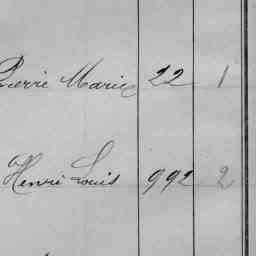 Pierre Marie 22 1
Henri Louis 992 2